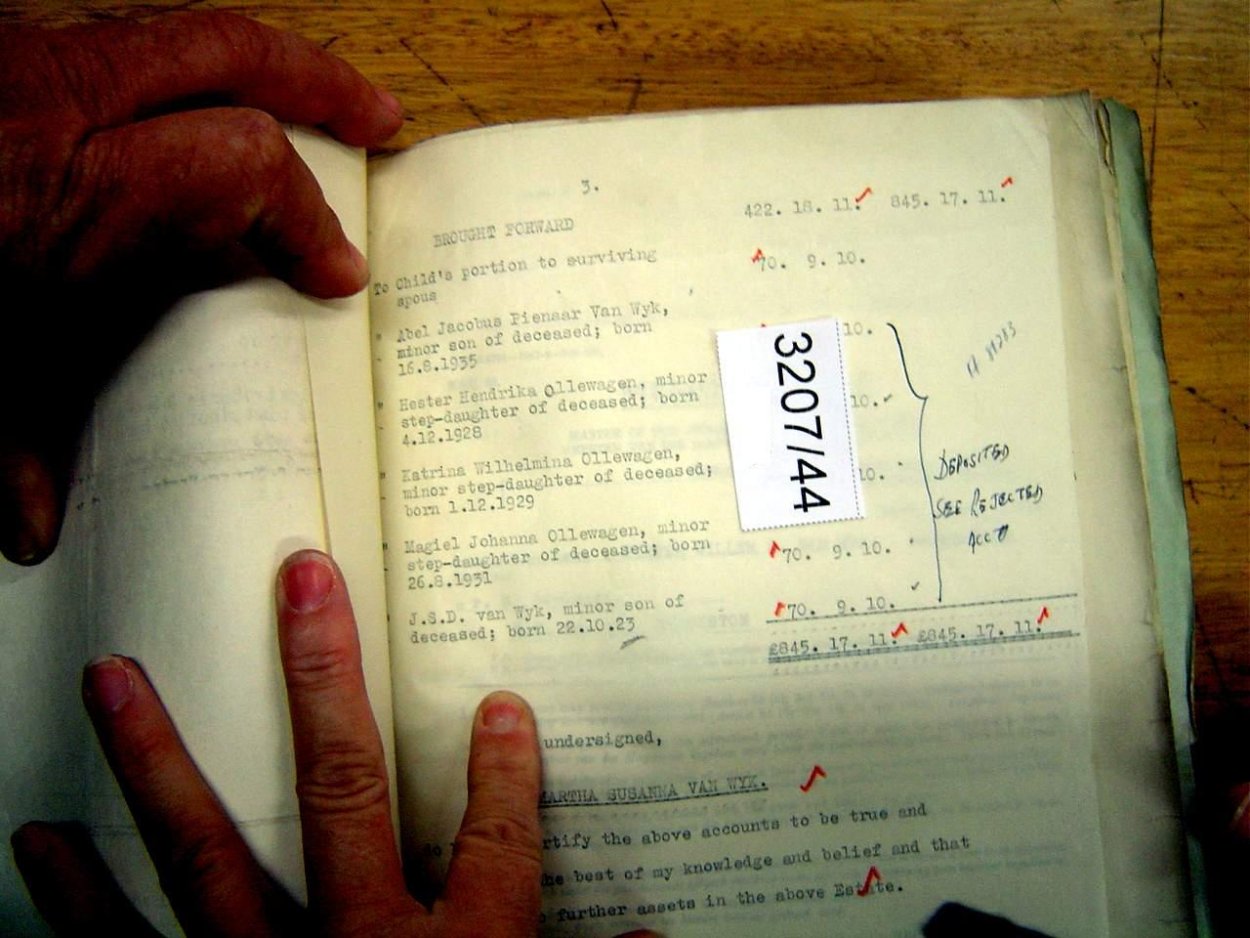 3.
BROUGHT FORWARD 422. 18. 11. 845. 17. 11.
To Child's portion to surviving 70. 9. 10.
spous
" Abel Jacobus Pienaar Van Wyk,
minor son of deceased; born 10.
16.8.1935
" Hester Hendrika Ollewagen, minor
step-daughter of deceased; born 10.
4.12.1928
" Katrina Wilhelmina Ollewagen,
minor step-daughter of deceased; 10.
born 1.12.1929
" Magiel Johanna Ollewagen, minor
step-daughter of deceased; born 70. 9. 10.
26.8.1931
J.S.D. van Wyk, minor son of 70. 9. 10.
deceased; born 22.10.23
£845. 17. 11. £845. 17. 11.
3207/44
DEPOSITED
SEE REJECTED
ACCT
undersigned,
MARTHA SUSANNA VAN WYK.
do rtify the above accounts to be true and
he best of my knowledge and belief and that
further assets in the above Estate.